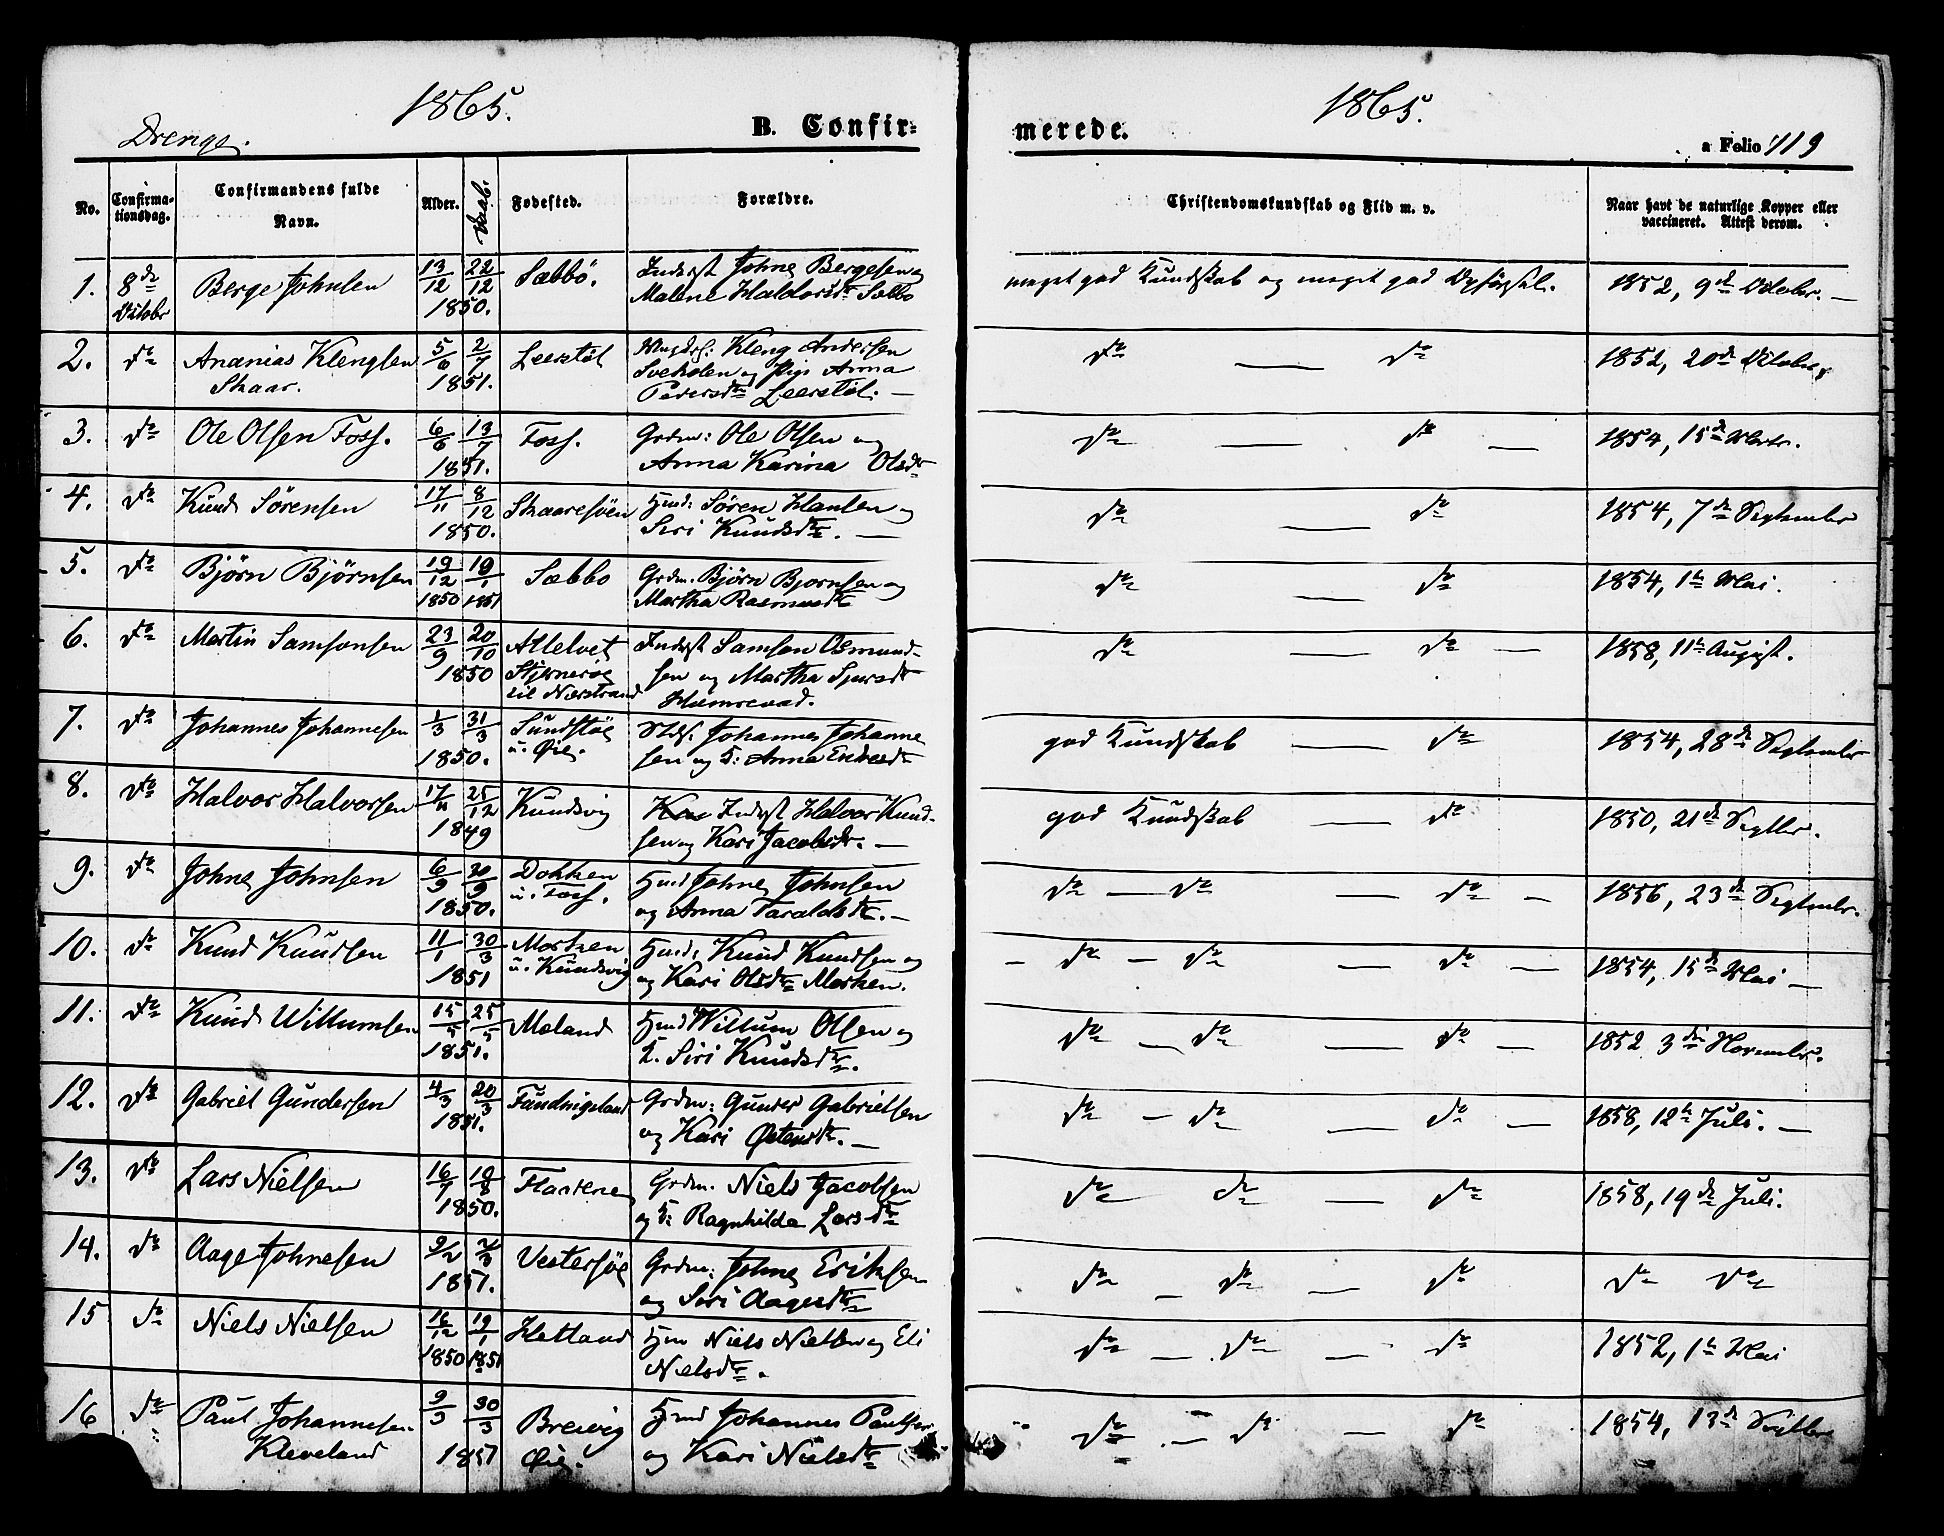 1865.
Drenge.
B. Confir-
No.
Confirma-
tionsdag.
Confirmandens fulde
Navn.
Alder.
Daab.
Fødested.
Forældre.
1. 8de Berge Johnsen 13/12 22/12 Sæbbö. Inderst Johne Bergesen og
Octobr 1850. Malene Haldorsdtr Sæbbo
2. do Ananias Klengsen 5/6 2/7 Leerstöl Kleng Andersen
Skaar. 1851. og Pige Anna
Pedersdtr Leerstöl. —
3. do Ole Olsen Foss. 6/6 13/7 Foss. Grdm: Ole Olsen og
1851. Anna Karina Olsdr
4. do Knud Sörensen 17/11 8/12 Skaaresöen Hmd: Sören Hansen og
1850. Siri Knudsdtr. —
5. do Björn Björnsen 19/12 19/1 Sæbbo Grdm. Björn Bjornsen og
1850 1851 Martha Rasmusdtr
6. do Martin Samsonsen 23/9 20/10 Allelvet Inderst Samson Osmund-
1850 Stjerneröe sen og Martha Sjursdtr
til Nærstrand
7. do Johannes Johannesen 1/3 31/3 Sundstöe Johannes Johanne
1850. u. Øie. sen og H: Anna Endresdtr
8. do Halvor Halvorsen 17/11 25/12 Knudsvig Inderst Halvor Knud-
1849 sen og Kari Jacobsdr. —
9. do Johne Johnsen 6/9 20/9 Dokken Hmd Johne Johnsen
1850. u. Foss. og Anna Taraldsdtr. —
10. do Knud Knudsen 11/1 30/3 Morken Hmd: Knud Knudsen og
1851 u. Knudsvig og Kari Olsdtr Morken.
11. do Knud Willumsen 15/5 25/5 Mæland Hmd Willum Olsen og
1851. H. Siri Knudsdtr.
12. do Gabriel Gundersen 4/3 20/3 Fundingsland Grdm: Gunder Gabrielsen
1851. og Kari Østensdtr. —
13. do Lars Nielsen 16/7 18/8 Grdm. Niels Jacobsen
1850. og H: Ragnhilda Larsdtr
14. do Aage Johnesen 9/2 2/3 Vestersöe Grdm: Johne Eriksen
1851. og Siri Aagesdtr
15 do Niels Nielsen 16/12 19/1 Hetland Hm Niels Nielsen og Eli
1850 1851 Nielsdtr.
16 do Paul Johannesen 9/3 30/3 Breivig Hmd Johannes Paulsen
Kleveland 1851 Øie. og Kari Nielsdtr
1865.
merede.
a Folio 119
Christendomskundskab og Flid m. v.
Naar havt de naturlige Kopper eller
vaccineret. Attest derom.
meget god Kundskab og meget god Opförsel. 1852, 9de Octobr. —
do — do 1852, 20de Octobr
do — do — 1854, 15de
do — do 1854, 7de September
do — do 1854, 1te Mai.
do — do — 1858, 11te August.
god Kundskab — do 1854, 28de September
god Kundskab — do 1850, 21de Septbr.
do — do — do — 1856, 23de Septembr.
- do - do — do — 1854, 15de Mai —
do — do — do — 1852 3die Novembr.
do — do — do — 1858, 12te Juli. —
do do — do 1858, 19de Juli.
do — do — do do do
do — do — do 1852, 1te Mai
do — do — do 1854, 13de Septbr